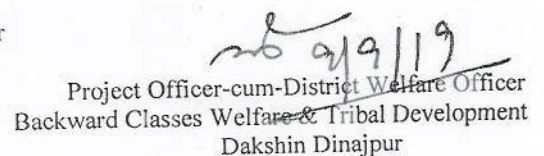 r
9/9/19
Project Officer-cum-District Welfare Officer
Backward Classes Welfare & Tribal Development
Dakshin Dinajpur